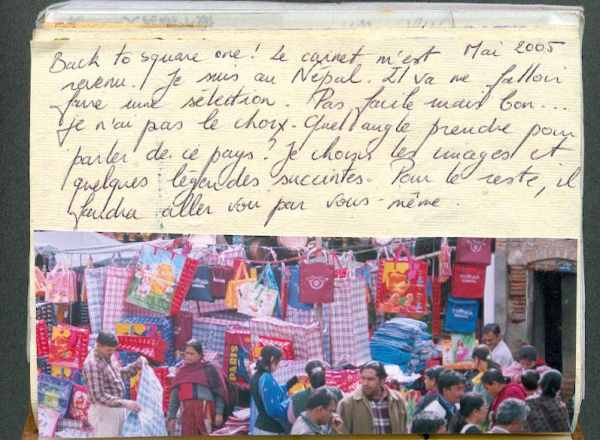 Back to square one! Le carnet m'est Mai 2005
revenu. Je suis au Népal. Il va me falloir
faire une sélection. Pas facile mais bon...
Je n'ai pas le choix. Quel angle prendre pour
parler de ce pays? Je choisis les images et
quelques légendes succintes. Pour le reste, il
faudra aller voir par vous-même.
PARIS